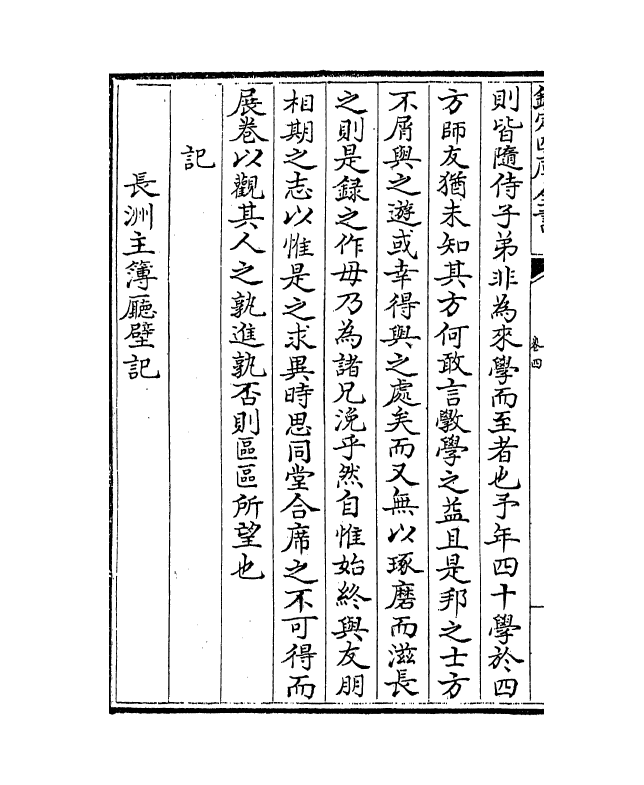 欽定四庫全書
卷四
則皆隨侍子弟非為來學而至者也予年四十學於四
方師友猶未知其方何敢言斆學之益且是邦之士方
不屑與之遊或幸得與之處矣而又無以琢磨而滋長
之則是録之作毋乃為諸兄浼乎然自惟始終與友朋
相期之志以惟是之求異時思同堂合席之不可得而
展卷以觀其人之孰進孰否則區區所望也
記
長洲主簿廳壁記